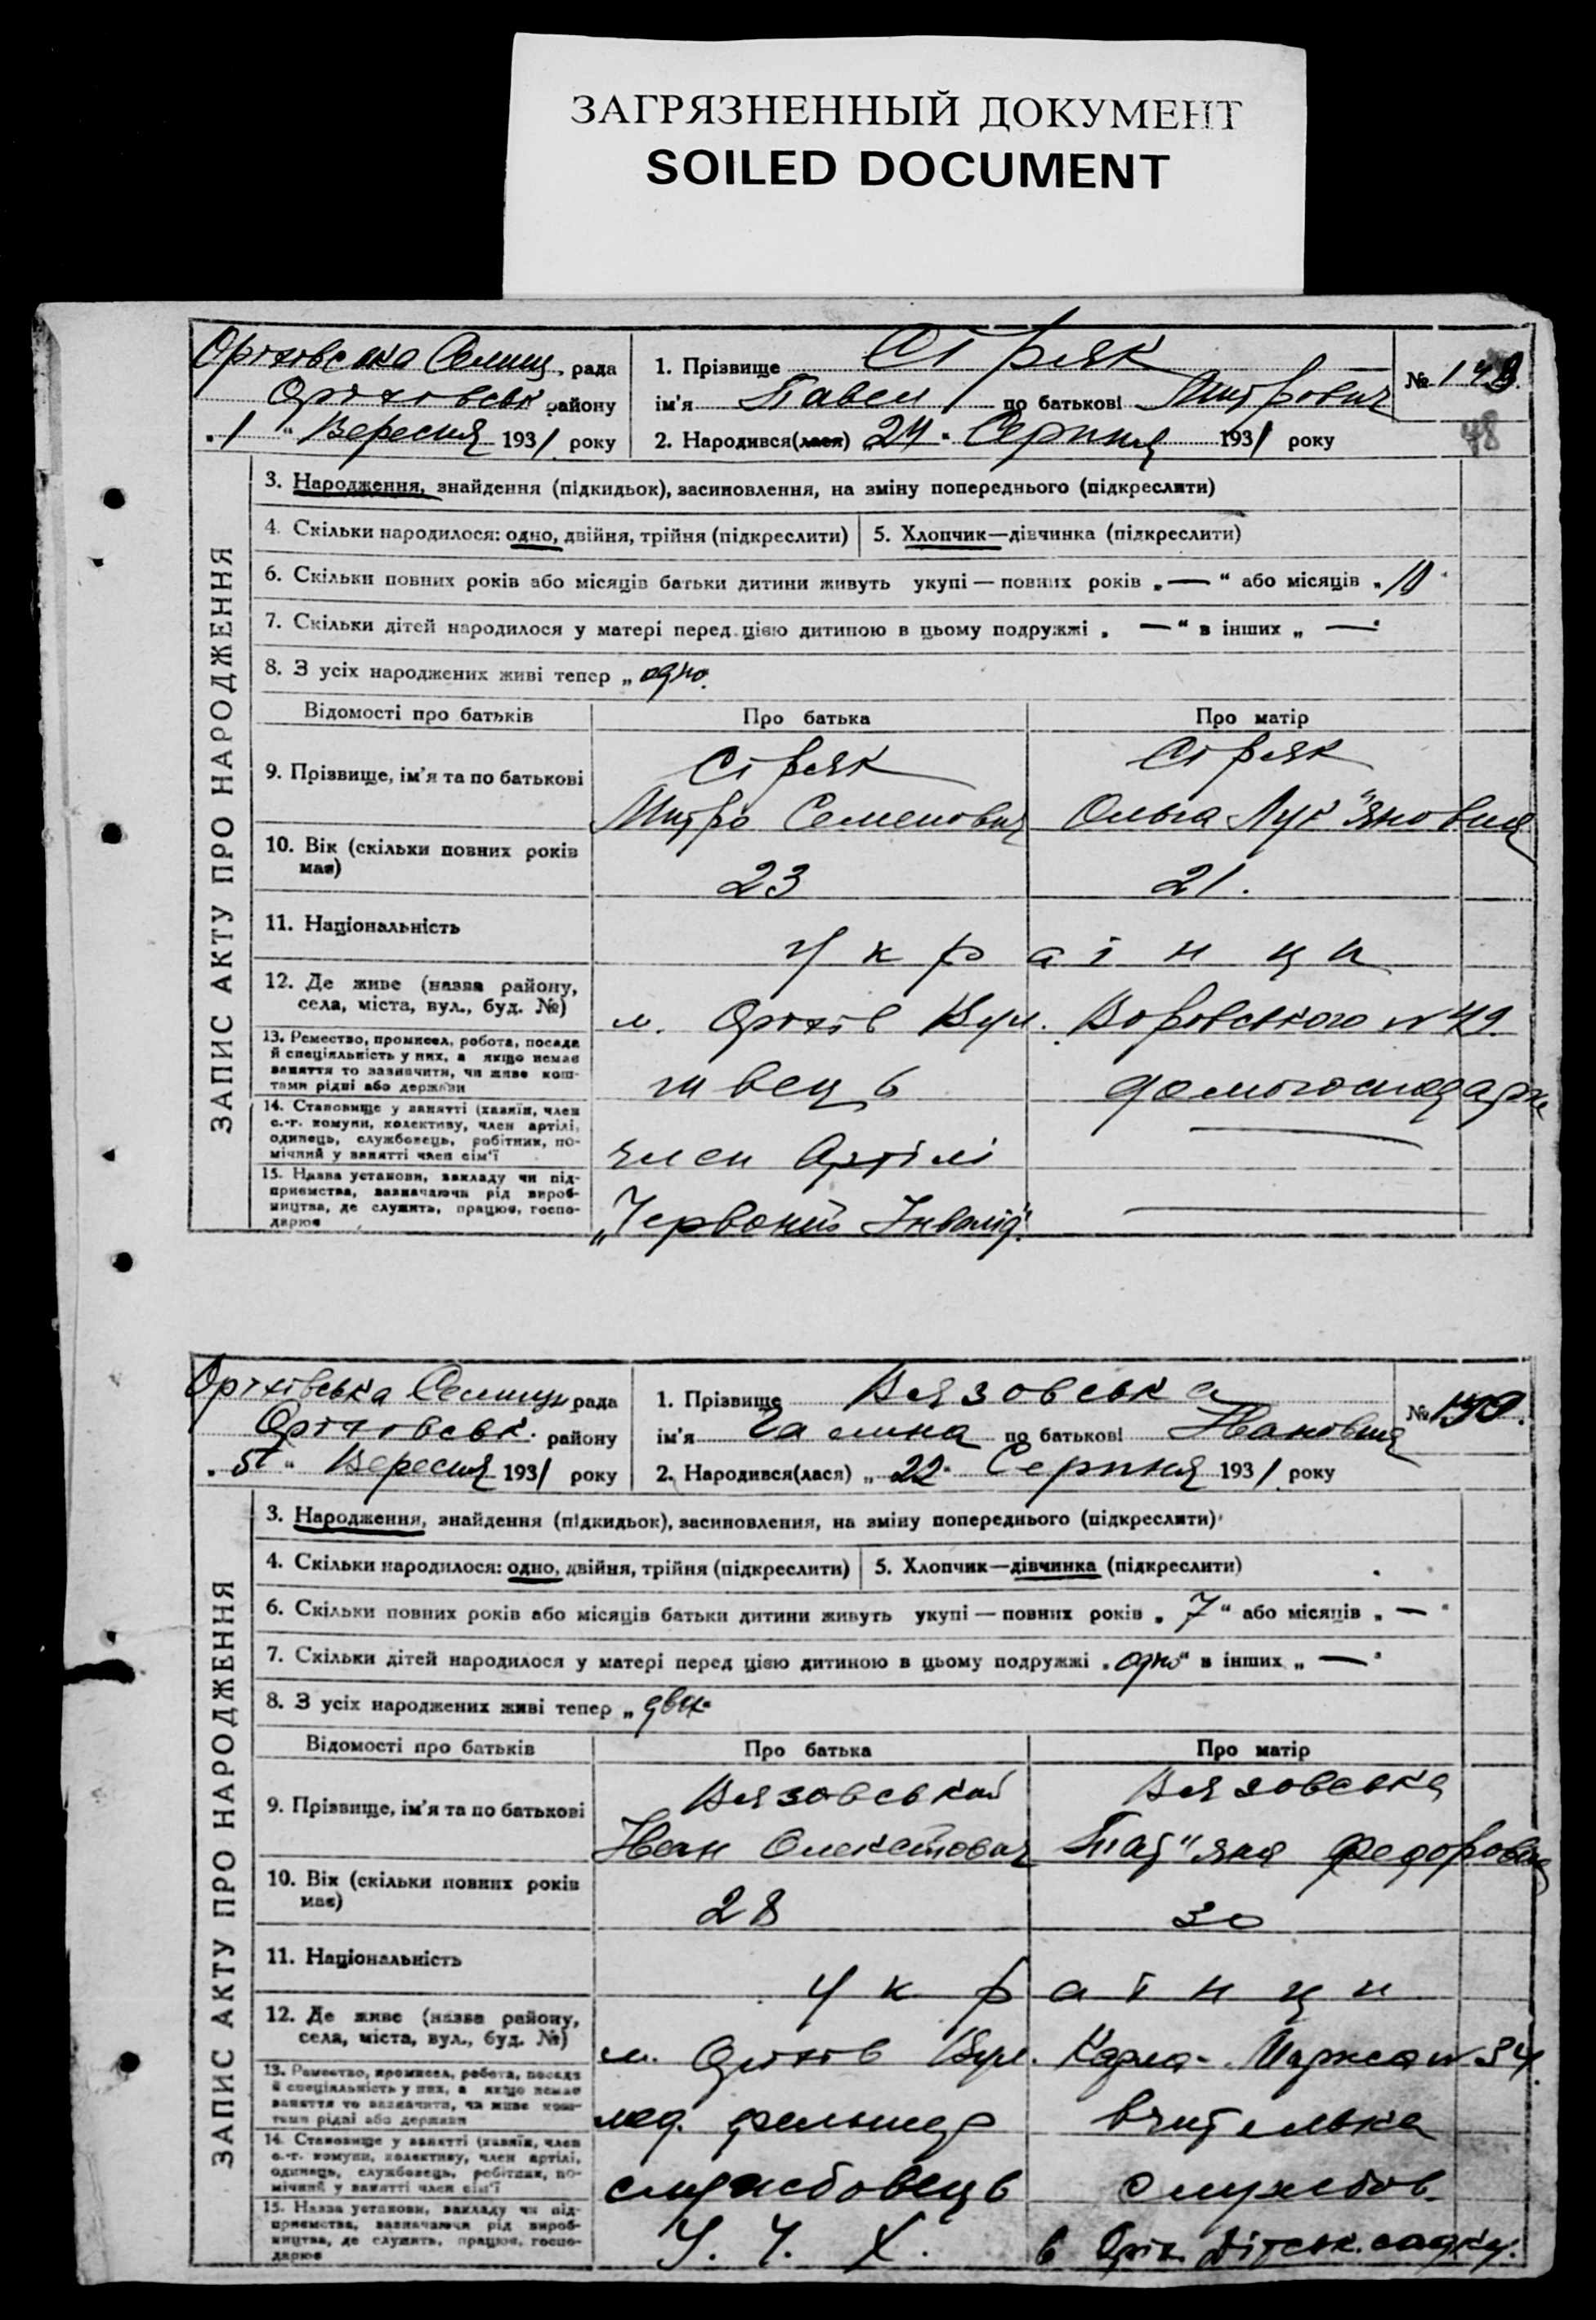 ЗАГРЯЗНЕННЫЙ ДОКУМЕНТ
SOILED DOCUMENT
Оріхівська Селищ. рада
Оріхівськ району
„1“ Вересня 1931 року
1. Прізвище Сіряк
ім'я Павел по батькові Митрович
2. Народився(лася) „24“ Серпня 1931 року
№
48
ЗАПИС АКТУ ПРО НАРОДЖЕННЯ
3. Народження, знайдення (підкидьок), засиновлення, на зміну попереднього (підкреслити)
4. Скільки народилося: одно, двійня, трійня (підкреслити)
5. Хлопчик—дівчинка (підкреслити)
6. Скільки повних років або місяців батьки дитини живуть укупі — повних років „—“ або місяців „10“
7. Скільки дітей народилося у матері перед цією дитиною в цьому подружжі „—“ в інших „—“
8. З усіх народжених живі тепер „одно.
Відомості про батьків Про батька Про матір
9. Прізвище, ім'я та по батькові
Сіряк Сіряк
Митро Семенович Ольга Лук"яновна
10. Вік (скільки повних років має)
23 21.
11. Національність
Українци
12. Де живе (назва району, села, міста, вул., буд. №)
м. Оріхів Вул. Воровського № 49.
13. Ремество, промисел, робота, посада й спеціяльність у них, а якщо немає заняття то зазначити, чи живе коштами рідні або держави
швець домогосподарка
14. Становище у занятті (хазяїн, член с.-г. комуни, колективу, член артілі, одинець, службовець, робітник, помічний у занятті член сім'ї
член Артілі
15. Назва установи, закладу чи підприємства, зазначаючи рід виробництва, де служить, працює, господарює
„Червоний Інвалід“.
Оріхівська Селищ рада
Оріхівськ. району
„5“ Вересня 1931 року
1. Прізвище Вязовська
ім'я Галина по батькові Ивановна
2. Народився(лася) „22“ Серпня 1931 року
№
ЗАПИС АКТУ ПРО НАРОДЖЕННЯ
3. Народження, знайдення (підкидьок), засиновлення, на зміну попереднього (підкреслити)
4. Скільки народилося: одно, двійня, трійня (підкреслити)
5. Хлопчик—дівчинка (підкреслити)
6. Скільки повних років або місяців батьки дитини живуть укупі — повних років „7“ або місяців „—“
7. Скільки дітей народилося у матері перед цією дитиною в цьому подружжі „одно“ в інших „—“
8. З усіх народжених живі тепер „двох“
Відомості про батьків Про батька Про матір
9. Прізвище, ім'я та по батькові
Вязовський Вязовська
Иван Тат"яна Федоровна
10. Вік (скільки повних років має)
28 30
11. Національність
Українци
12. Де живе (назва району, села, міста, вул., буд. №)
м. Оріхів Вул. Карла-Маркса № 34.
13. Ремество, промисел, робота, посада й спеціяльність у них, а якщо немає заняття то зазначити, чи живе коштами рідні або держави
мед. фельшер вчителька
14. Становище у занятті (хазяїн, член с.-г. комуни, колективу, член артілі, одинець, службовець, робітник, помічний у занятті член сім'ї
службовець службов.
15. Назва установи, закладу чи підприємства, зазначаючи рід виробництва, де служить, працює, господарює
У. Ч. Х. в Оріх. Дітськ. садку.